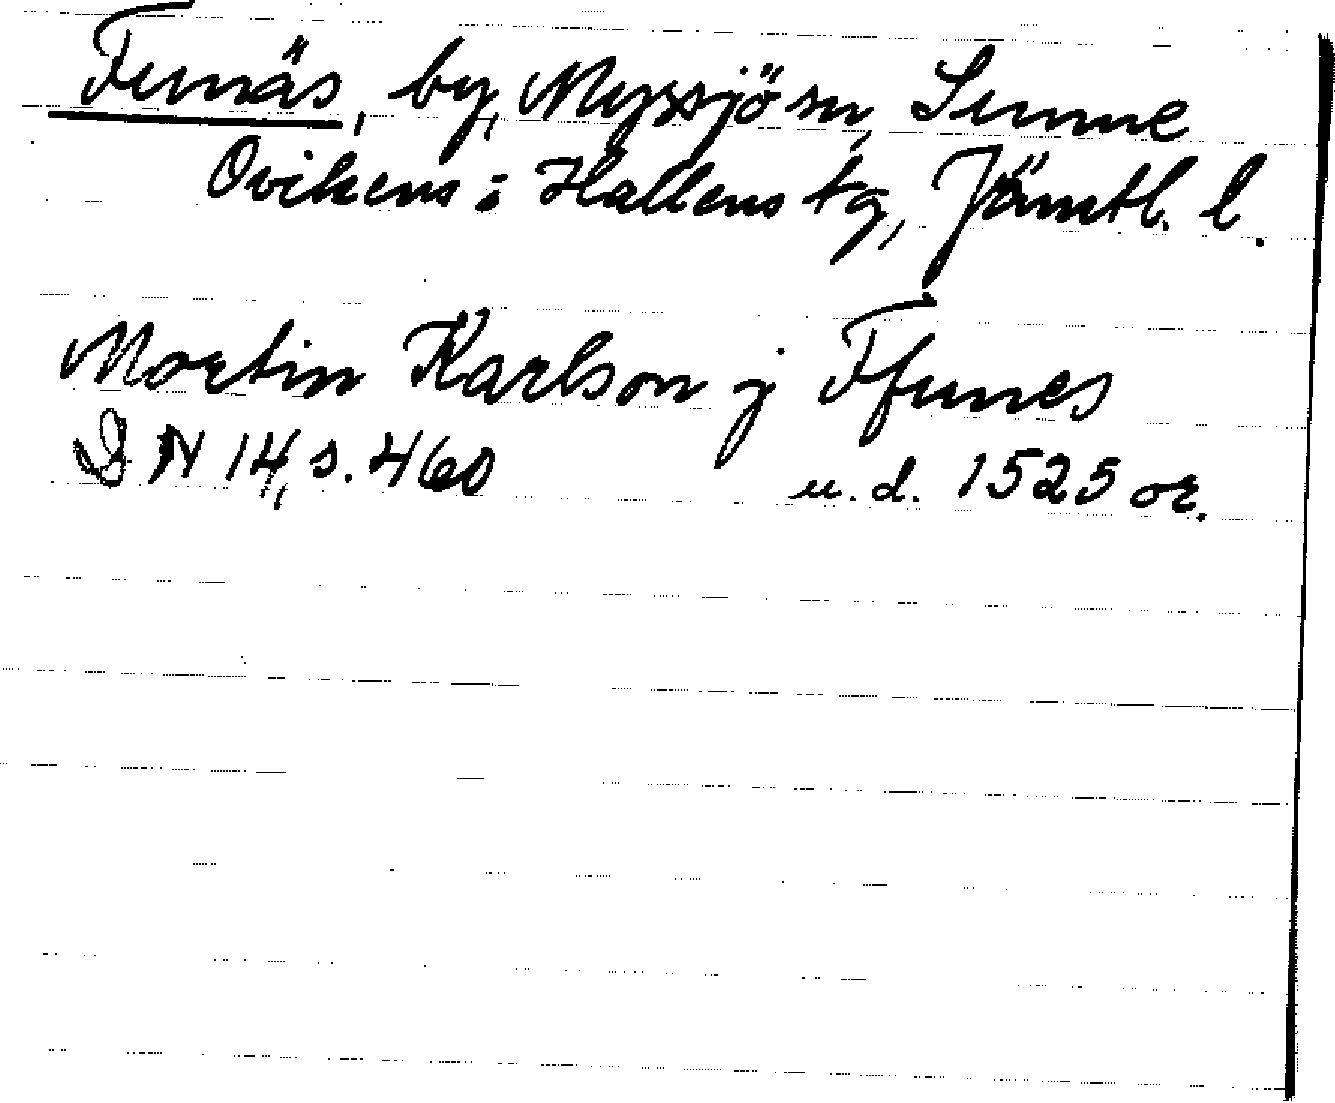 Funäs, by, Myssjö sn, Sunne
Ovikens i Hallens tg, Jämtl. l.
Mortin Karlson j Ffunes
DN 14, s. 460 u. d. 1525 or.